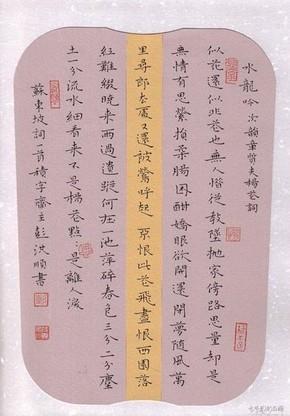 水龍吟次韻章質夫楊花詞
似花還似非花也無人惜從教墜拋家傍路思量卻是
無情有思縈損柔腸困酣嬌眼欲開還閉夢隨風萬
里尋郎去處又還被鶯呼起 不恨此花飛盡恨西園落
紅難綴曉來雨過遺蹤何在一池萍碎春色三分二分塵
土一分流水細看來不是楊花點〻是離人淚
蘇東坡詞一首積字齋主彭洪順書